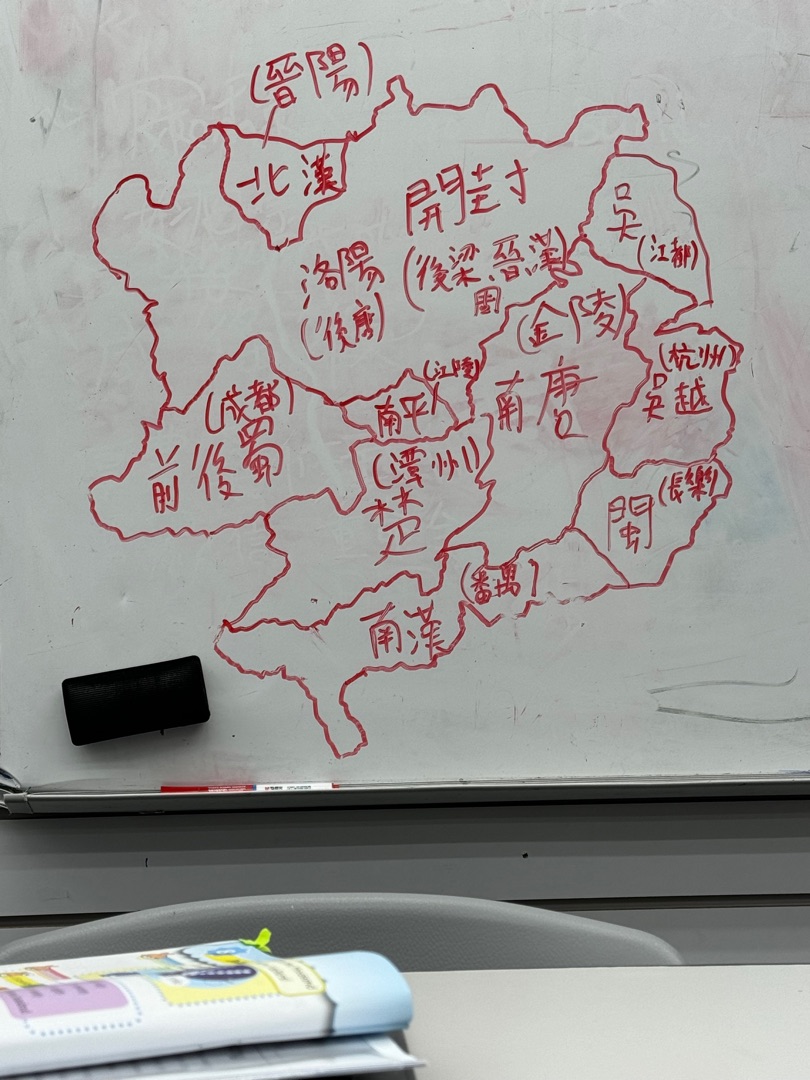 (晉陽)
北漢
開封
(後梁 晉 漢)
周
洛陽
(後唐)
吳
(江都)
(金陵)
南唐
(杭州)
吳越
(江陵)
南平
(成都)
前後蜀
(潭州)
楚
(長樂)
閩
(番禺)
南漢